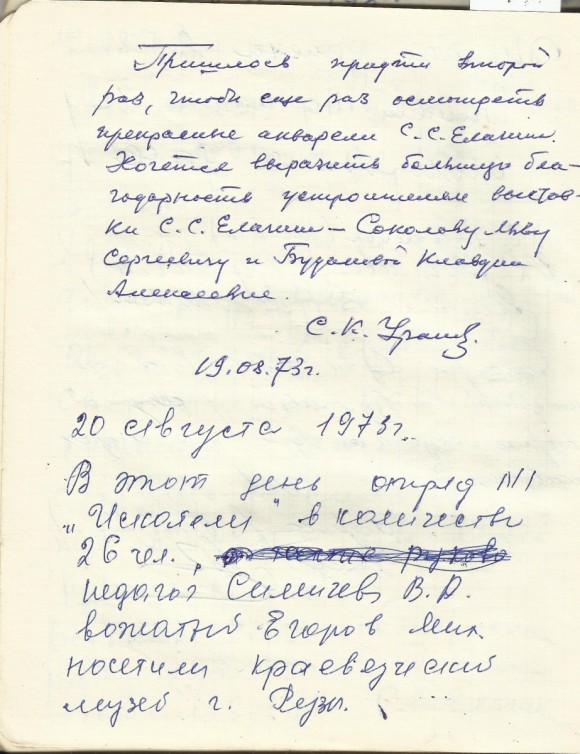 Пришлось придти второй
раз, чтобы еще раз осмотреть
прекрасные акварели С.С. Елагин.
Хочется выразить большую бла-
годарность устроителям выстав-
ки С.С. Елагин – Соколову Льву
Сергеевичу и Будановой Клавдии
Алексеевне.
С.К.
19.08.73г.
20 августа 1973г.
В этот день отряд №1
„Искатели" в количестве
26 чел.,
педагог В.А.
вожатый Егоров Мих.
посетили краеведческий
музей г. Рузы.